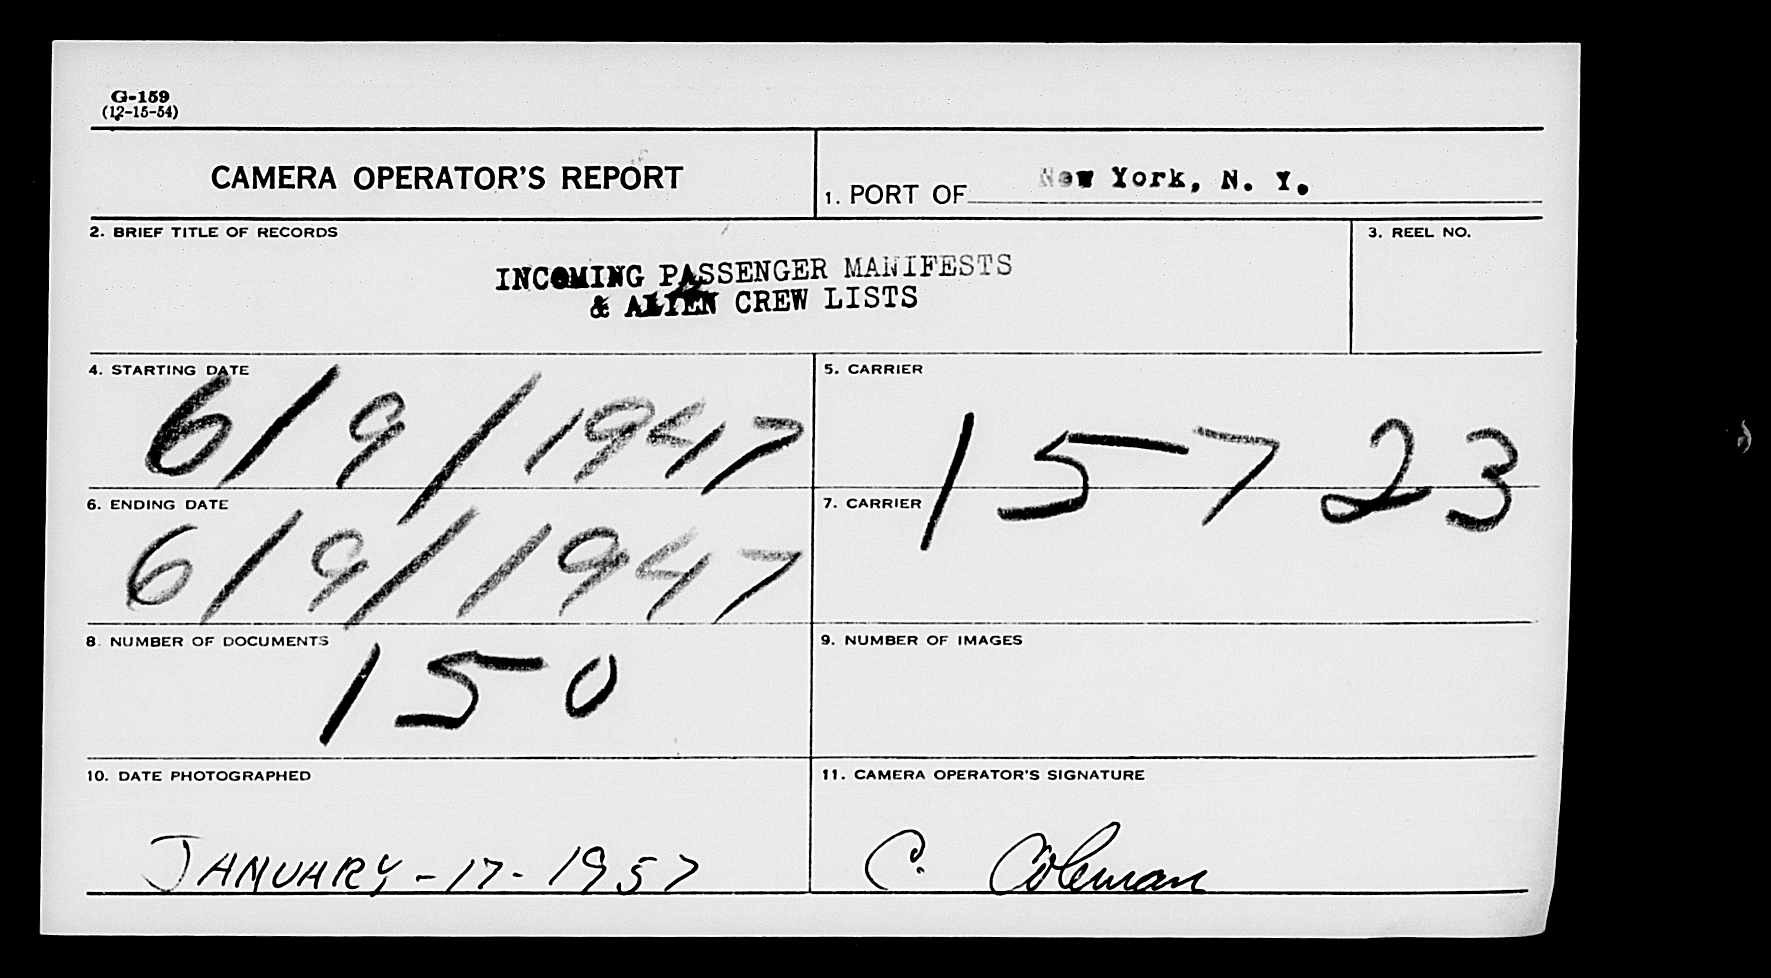 G-159
(12-15-54)
CAMERA OPERATOR'S REPORT
1. PORT OF New York, N. Y.
2. BRIEF TITLE OF RECORDS
INCOMING PASSENGER MANIFESTS
& ALIEN CREW LISTS
3. REEL NO.
4. STARTING DATE
6/9/1947
5. CARRIER
15723
6. ENDING DATE
6/9/1947
7. CARRIER
8. NUMBER OF DOCUMENTS
150
9. NUMBER OF IMAGES
10. DATE PHOTOGRAPHED
JANUARY-17-1957
11. CAMERA OPERATOR'S SIGNATURE
C. Coleman